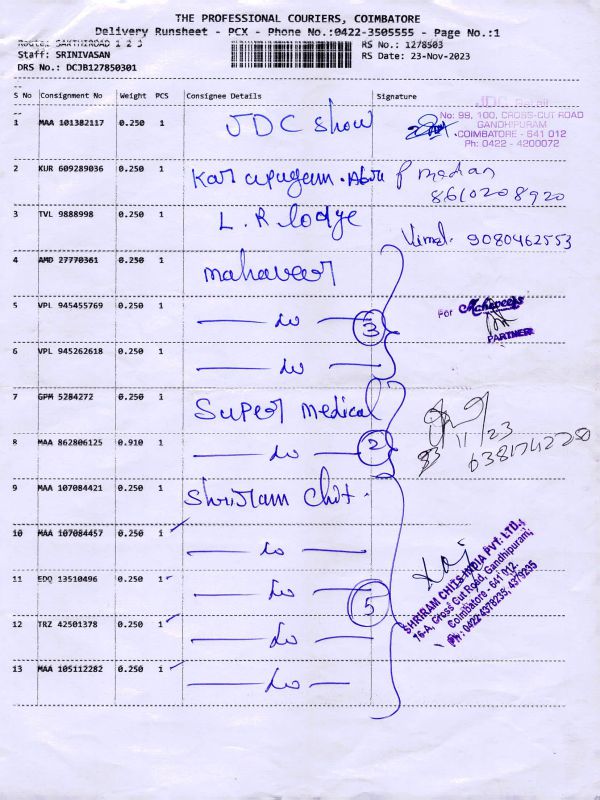 THE PROFESSIONAL COURIERS, COIMBATORE
Delivery Runsheet - PCX - Phone No.:0422-3505555 - Page No.:1
Route: SAKTHIROAD 1 2 3
RS No.: 1278503
Staff: SRINIVASAN
RS Date: 23-Nov-2023
DRS No.: DCJB127850301
S No Consignment No Weight PCS Consignee Details Signature
1 MAA 101382117 0.250 1 JDC Show
JDC Retail
No: 99, 100, CROSS-CUT ROAD
GANDHIPURAM
COIMBATORE - 641 012
Ph: 0422 - 4200072
2 KUR 609289036 0.250 1
8610208920
3 TVL 9888998 0.250 1 L.R lodge
Vimal. 9080462553
4 AMD 27770361 0.250 1 mahaveer
5 VPL 945455769 0.250 1 — do — 3
For Mahaveers
PARTNER
6 VPL 945262618 0.250 1 — do —
7 GPM 5284272 0.250 1 Super medical
8 MAA 862806125 0.910 1 — do — 2
23/11/23
6381742280
9 MAA 107084421 0.250 1 Shriram Chit.
10 MAA 107084457 0.250 1 — do —
11 EDQ 13510496 0.250 1 — do — 5
SHRIRAM CHITS INDIA PVT. LTD.,
76-A, Cross Cut Road, Gandhipuram,
Coimbatore - 641 012.
Ph: 0422-4378235, 4379235
12 TRZ 42501378 0.250 1 — do —
13 MAA 105112282 0.250 1 — do —